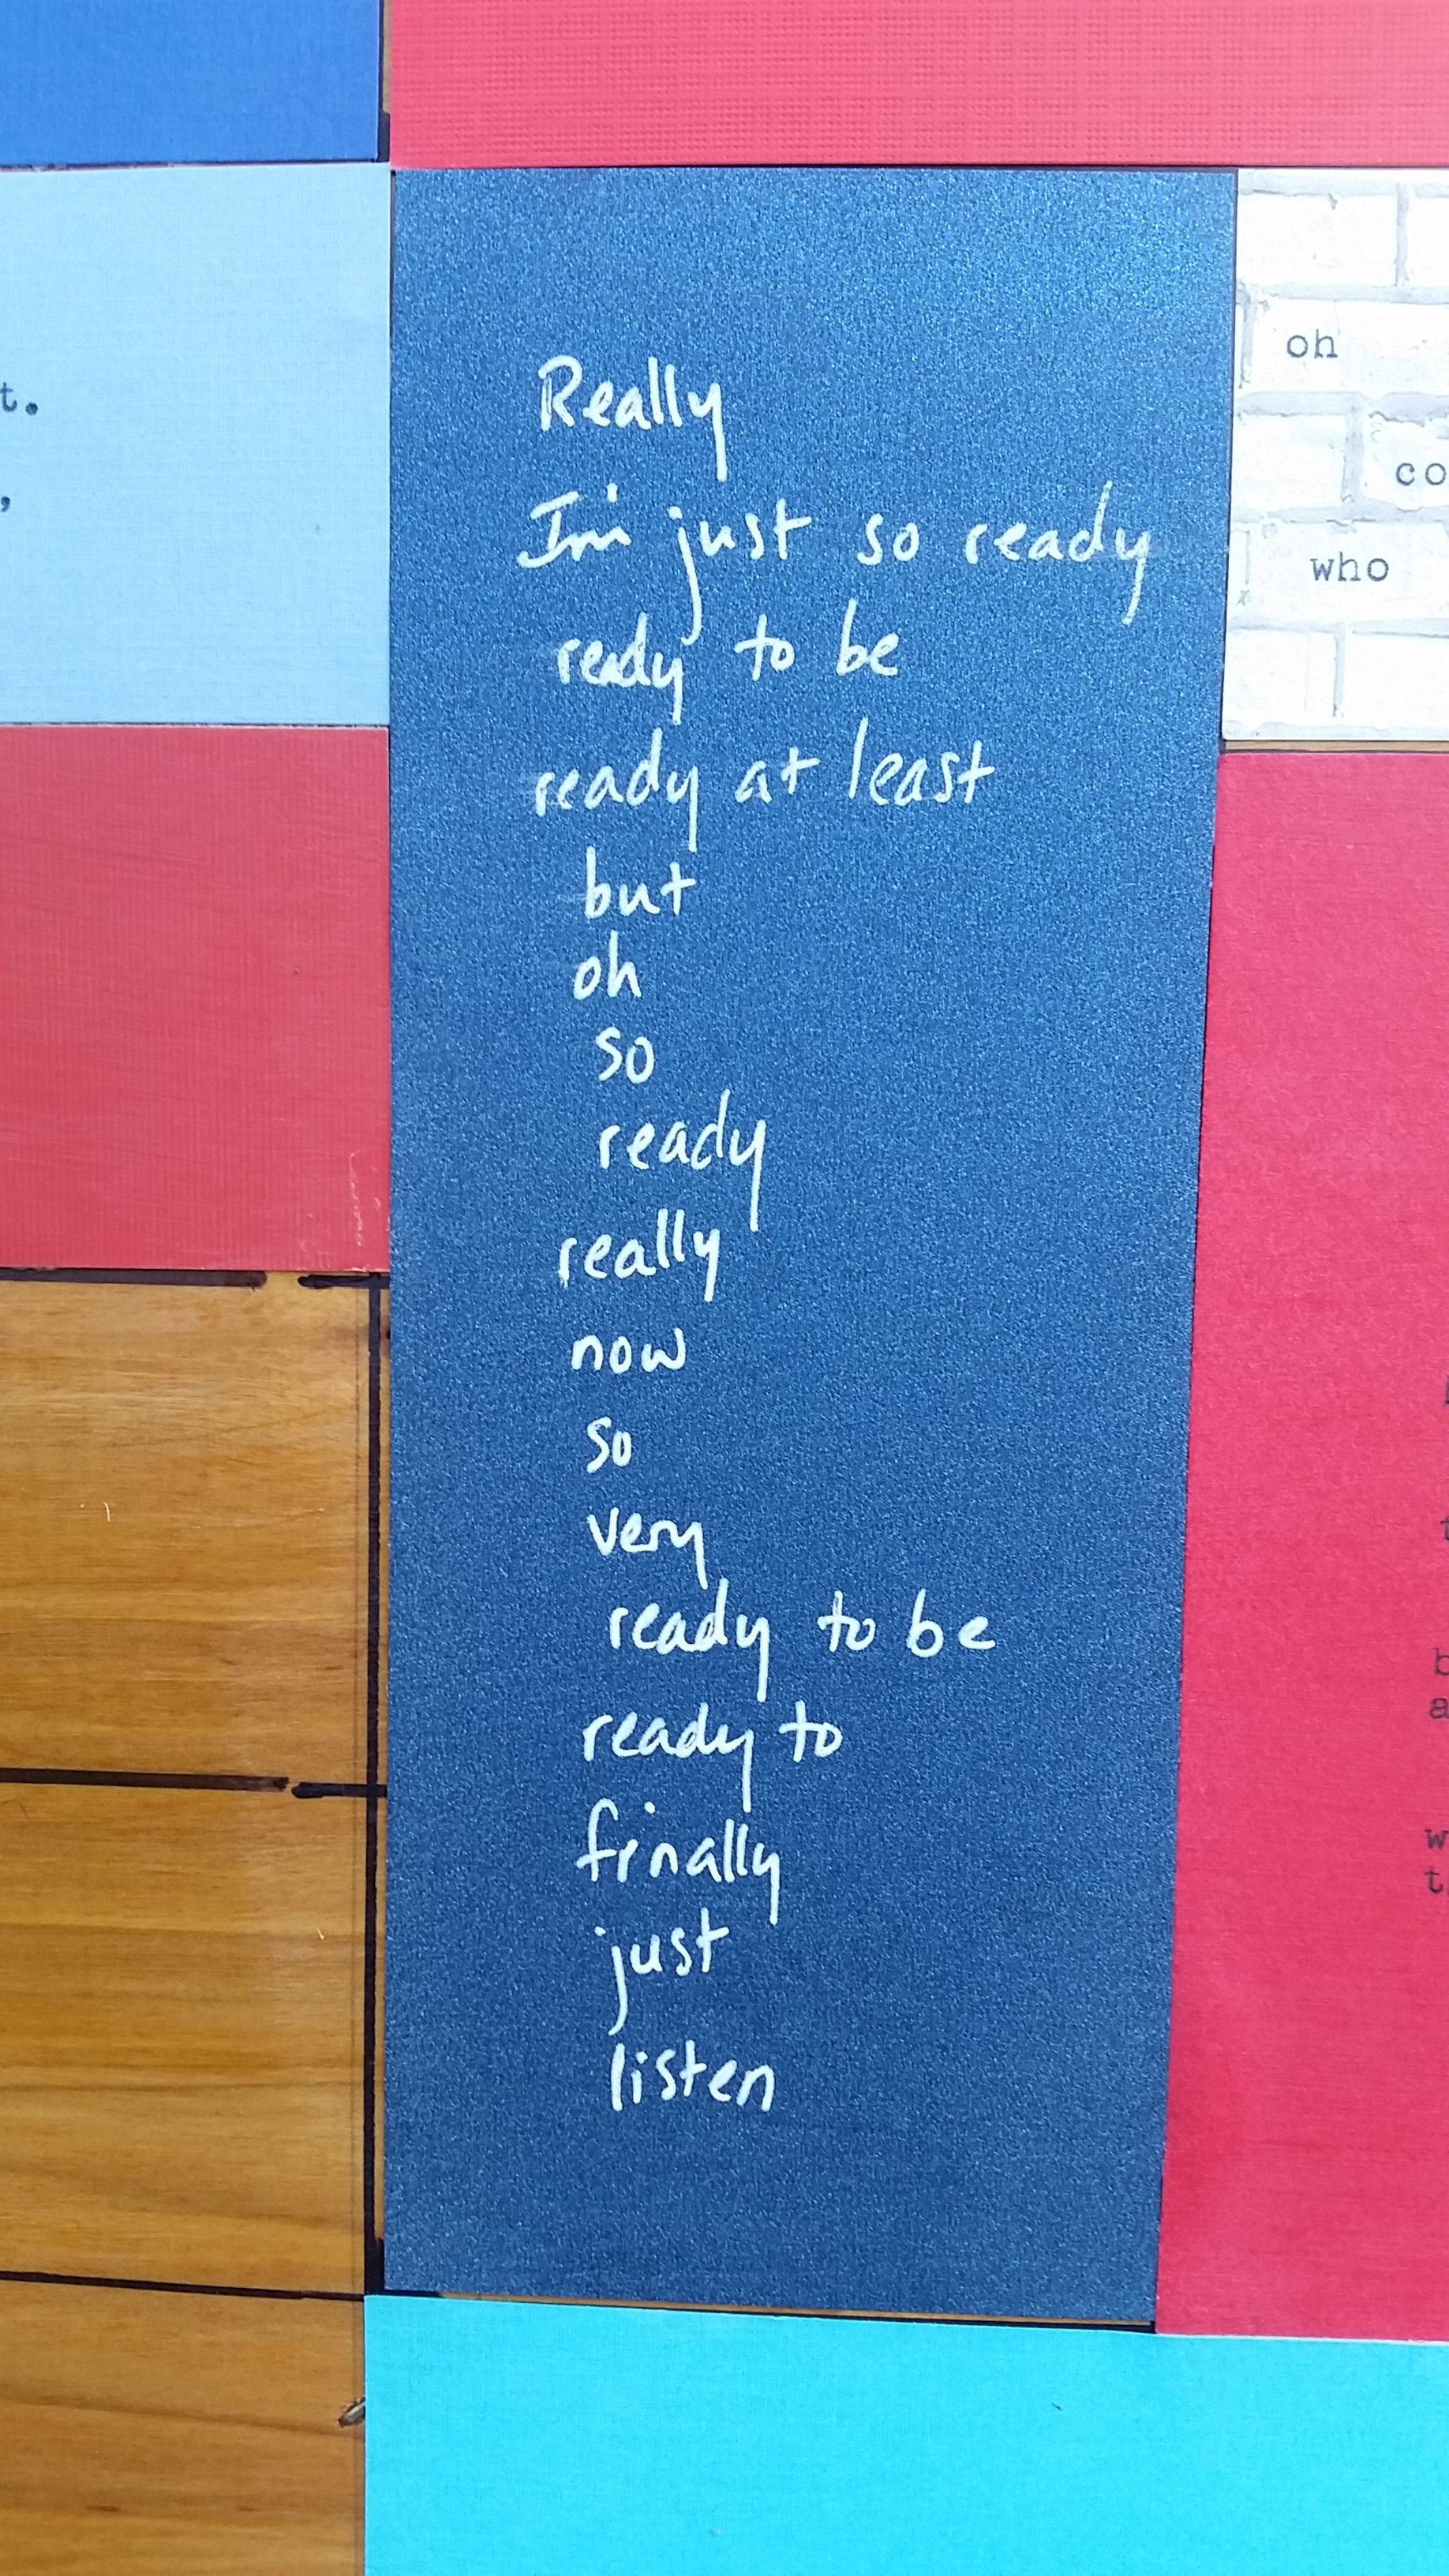 Really
I'm just so ready
ready to be
ready at least
but
oh
so
ready
really
now
so
very
ready to be
ready to
finally
just
listen
t.
,
oh
co
who
t
b
a
w
t